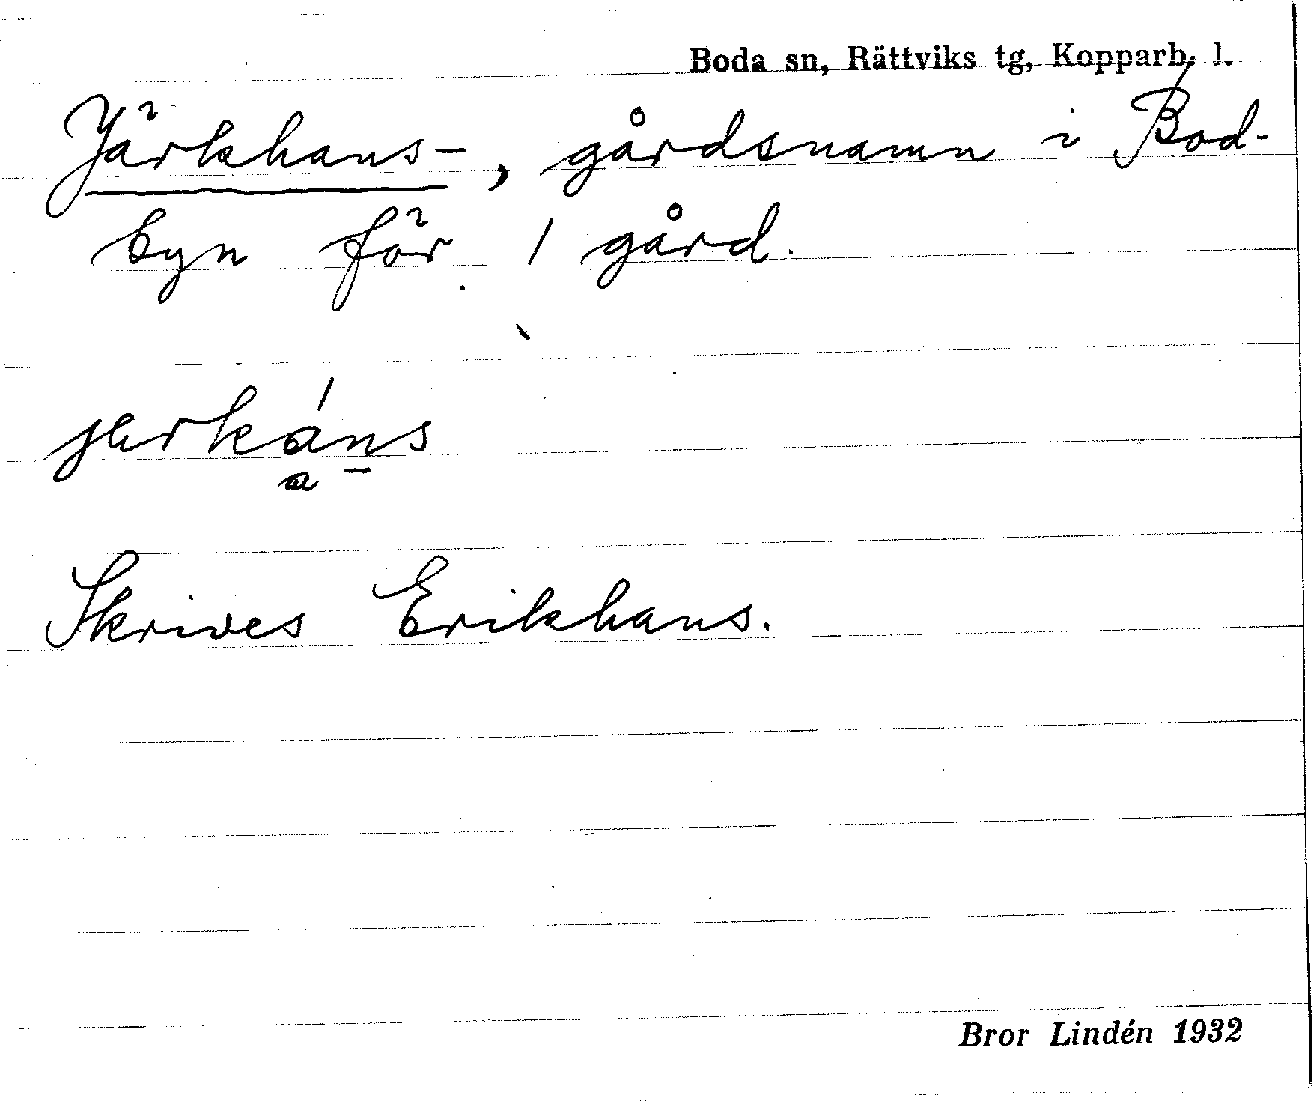 Boda sn, Rättviks tg, Kopparb. l.
Järkhans-, gårdsnamn i Bod-
byn för 1 gård.
jerkáns
a
Skrives Erikhans.
Bror Lindén 1932